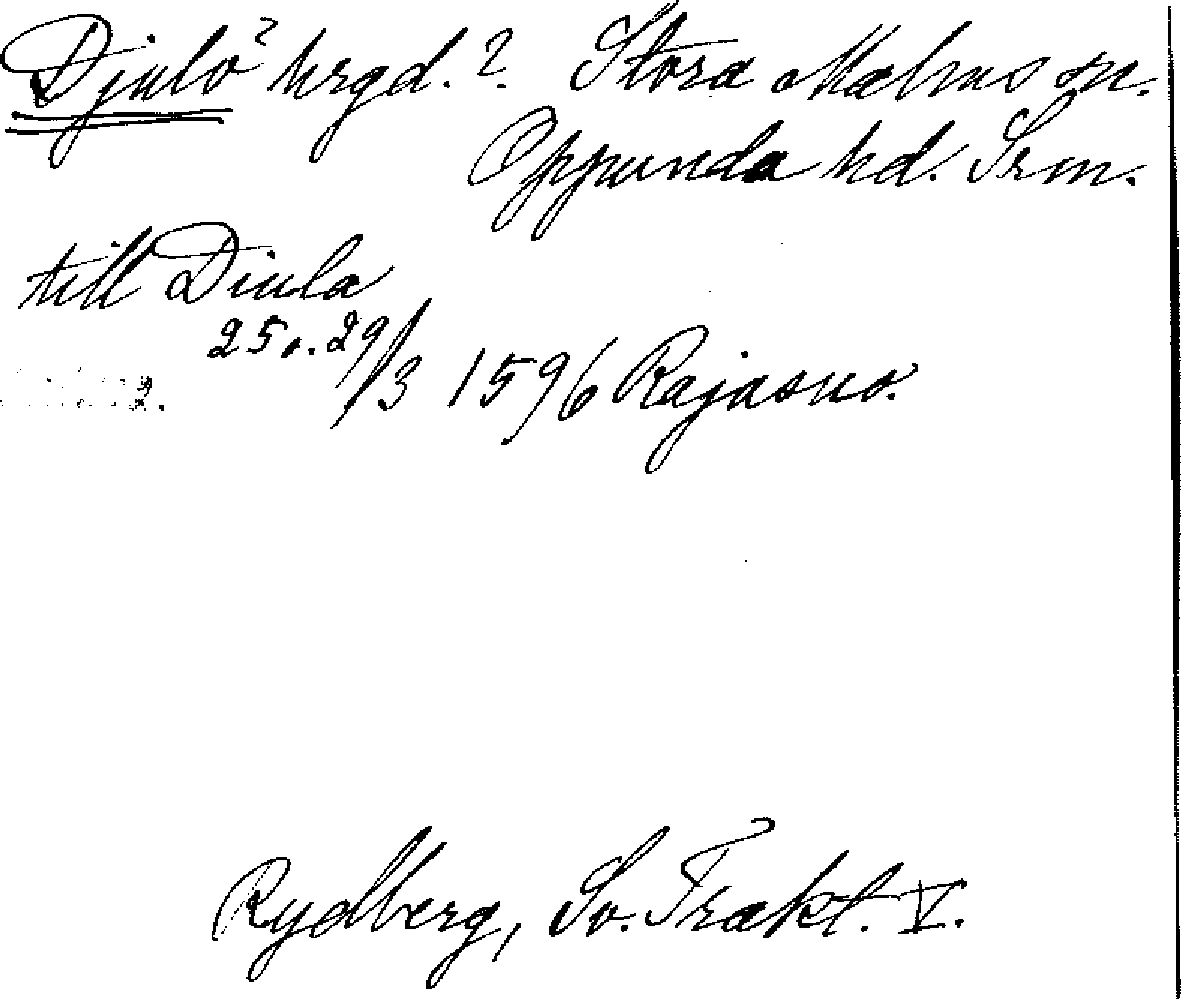 Djulö? hrgd.? Stora Malms sn.
Oppunda hd. Srm.
till Diula
25 o. 29/3 1596 Rajasuo.
Rydberg, Sv. Trakt. V.